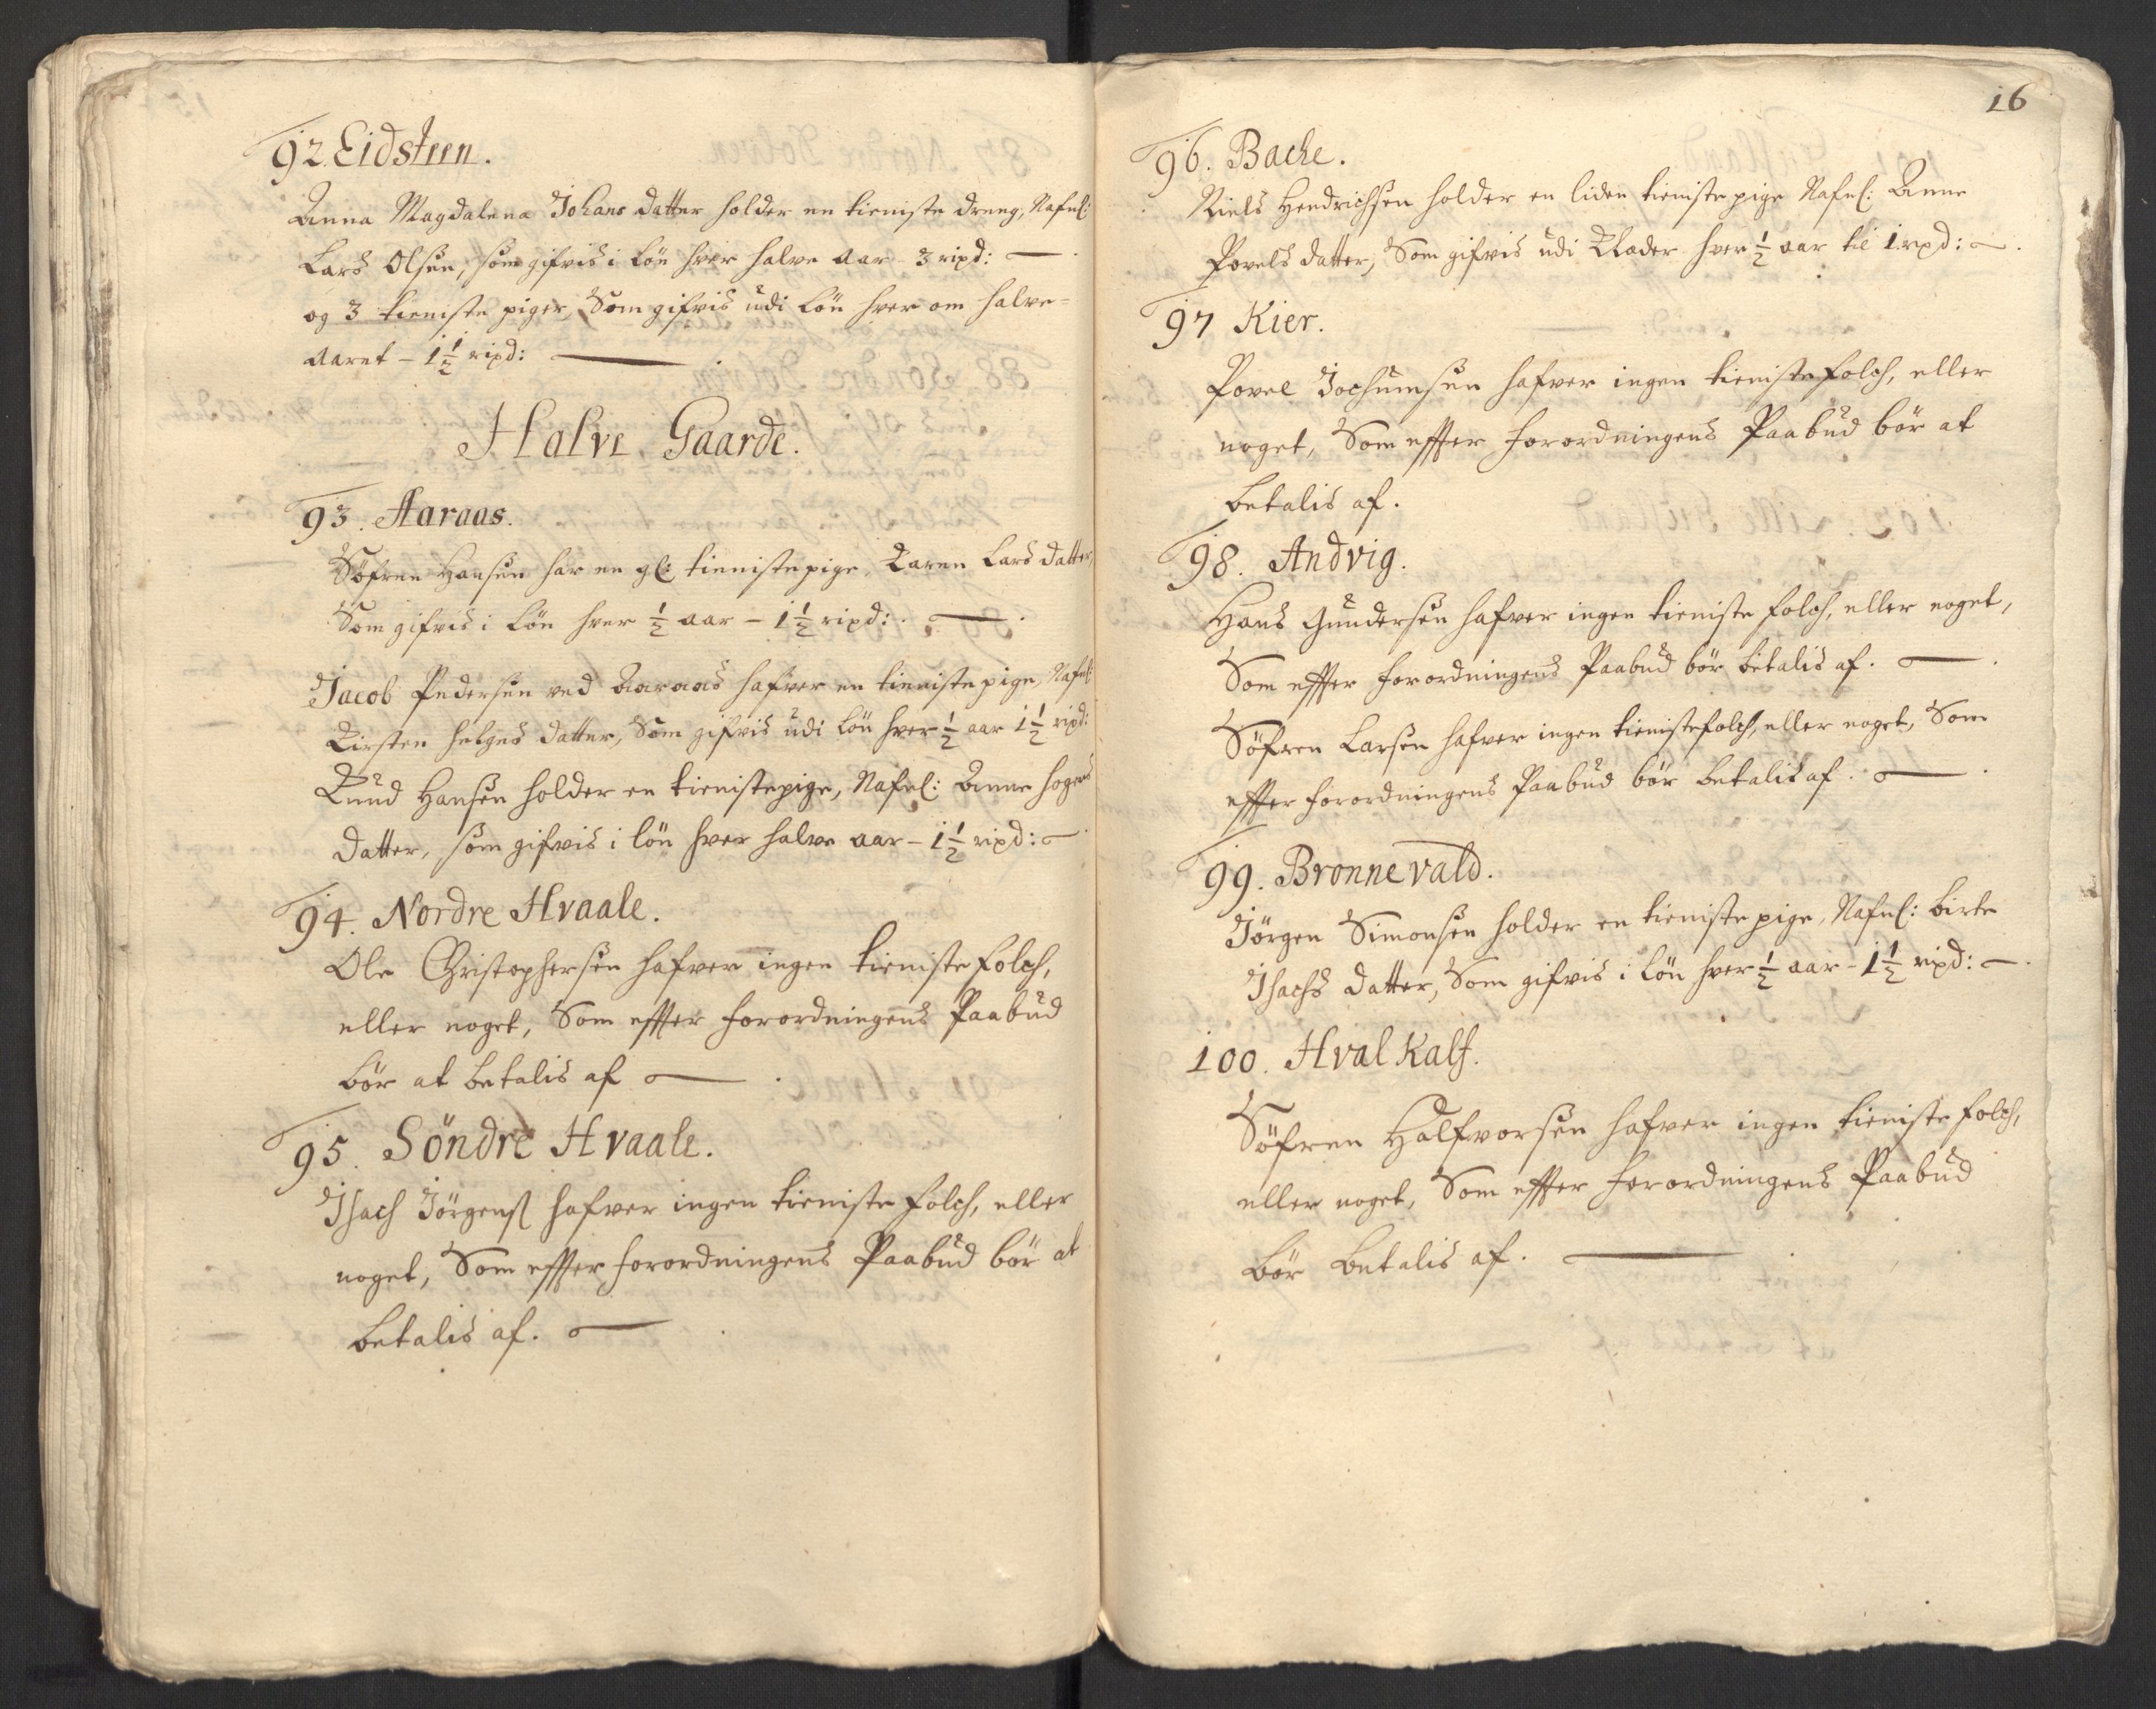 92. Eidsteen.
Anna Magdalena Johans datter holder en tieniste dreng, Nafnl:
Lars Olsen, som gifvis i Løn hver halve Aar - 3 rixd:
og 3 tieniste piger, Som gifvis udi Løn hver om halve=
Aaret - 1½ rixd:
Halve Gaarde.
93. Aaraas.
Søfren Hansen har en gl: tienistepige, Karen Lars datter,
Som gifvis i Løn hver ½ aar - 1½ rixd:
Jacob Pedersen ved Aaraas hafver en tienistepige, Nafnl:
Kirsten Helges datter, Som gifvis udi Løn hver ½ aar 1½ rixd:
Knud Hansen holder en tienistepige, Nafnl: Anne
Datter, som gifvis i løn hver halve aar - 1½ rixd:
94. Nordre Hvaale.
Ole Christophersen hafver ingen tieniste folch,
eller noget, Som effter forordningens Paabud
bør at betalis af
95. Söndre Hvaale.
Isach Jörgens hafver ingen tieniste folch, eller
noget, Som effter forordningens Paabud bør at
betalis af.
16
96. Bache.
Niels Hendrichsen holder en liden tienistepige Nafnl: Anne
Povels datter, Som gifvis udi Klæder hver ½ aar til 1 rixd:
97 Kier.
Povel Jochumsen hafver ingen tienistefolch, eller
noget, Som effter forordningens Paabud bör at
betalis af.
98. Andvig.
Hans Gundersen hafver ingen tieniste folch, eller noget,
Som effter forordningens Paabud bør betalis af.
Söfren Larsen hafver ingen tienistefolch, eller noget, Som
effter forordningens Paabud bör betalis af.
99. Bronnevald.
Jörgen Simonsen holder en tieniste pige, Nafnl: Birte
Isachs datter, Som gifvis i Løn hver ½ aar - 1½ rixd:
100. Hval Kalf.
Söfren Halfvorsen hafver ingen tieniste folch,
eller noget, Som effter forordningens Paabud
bör betalis af.